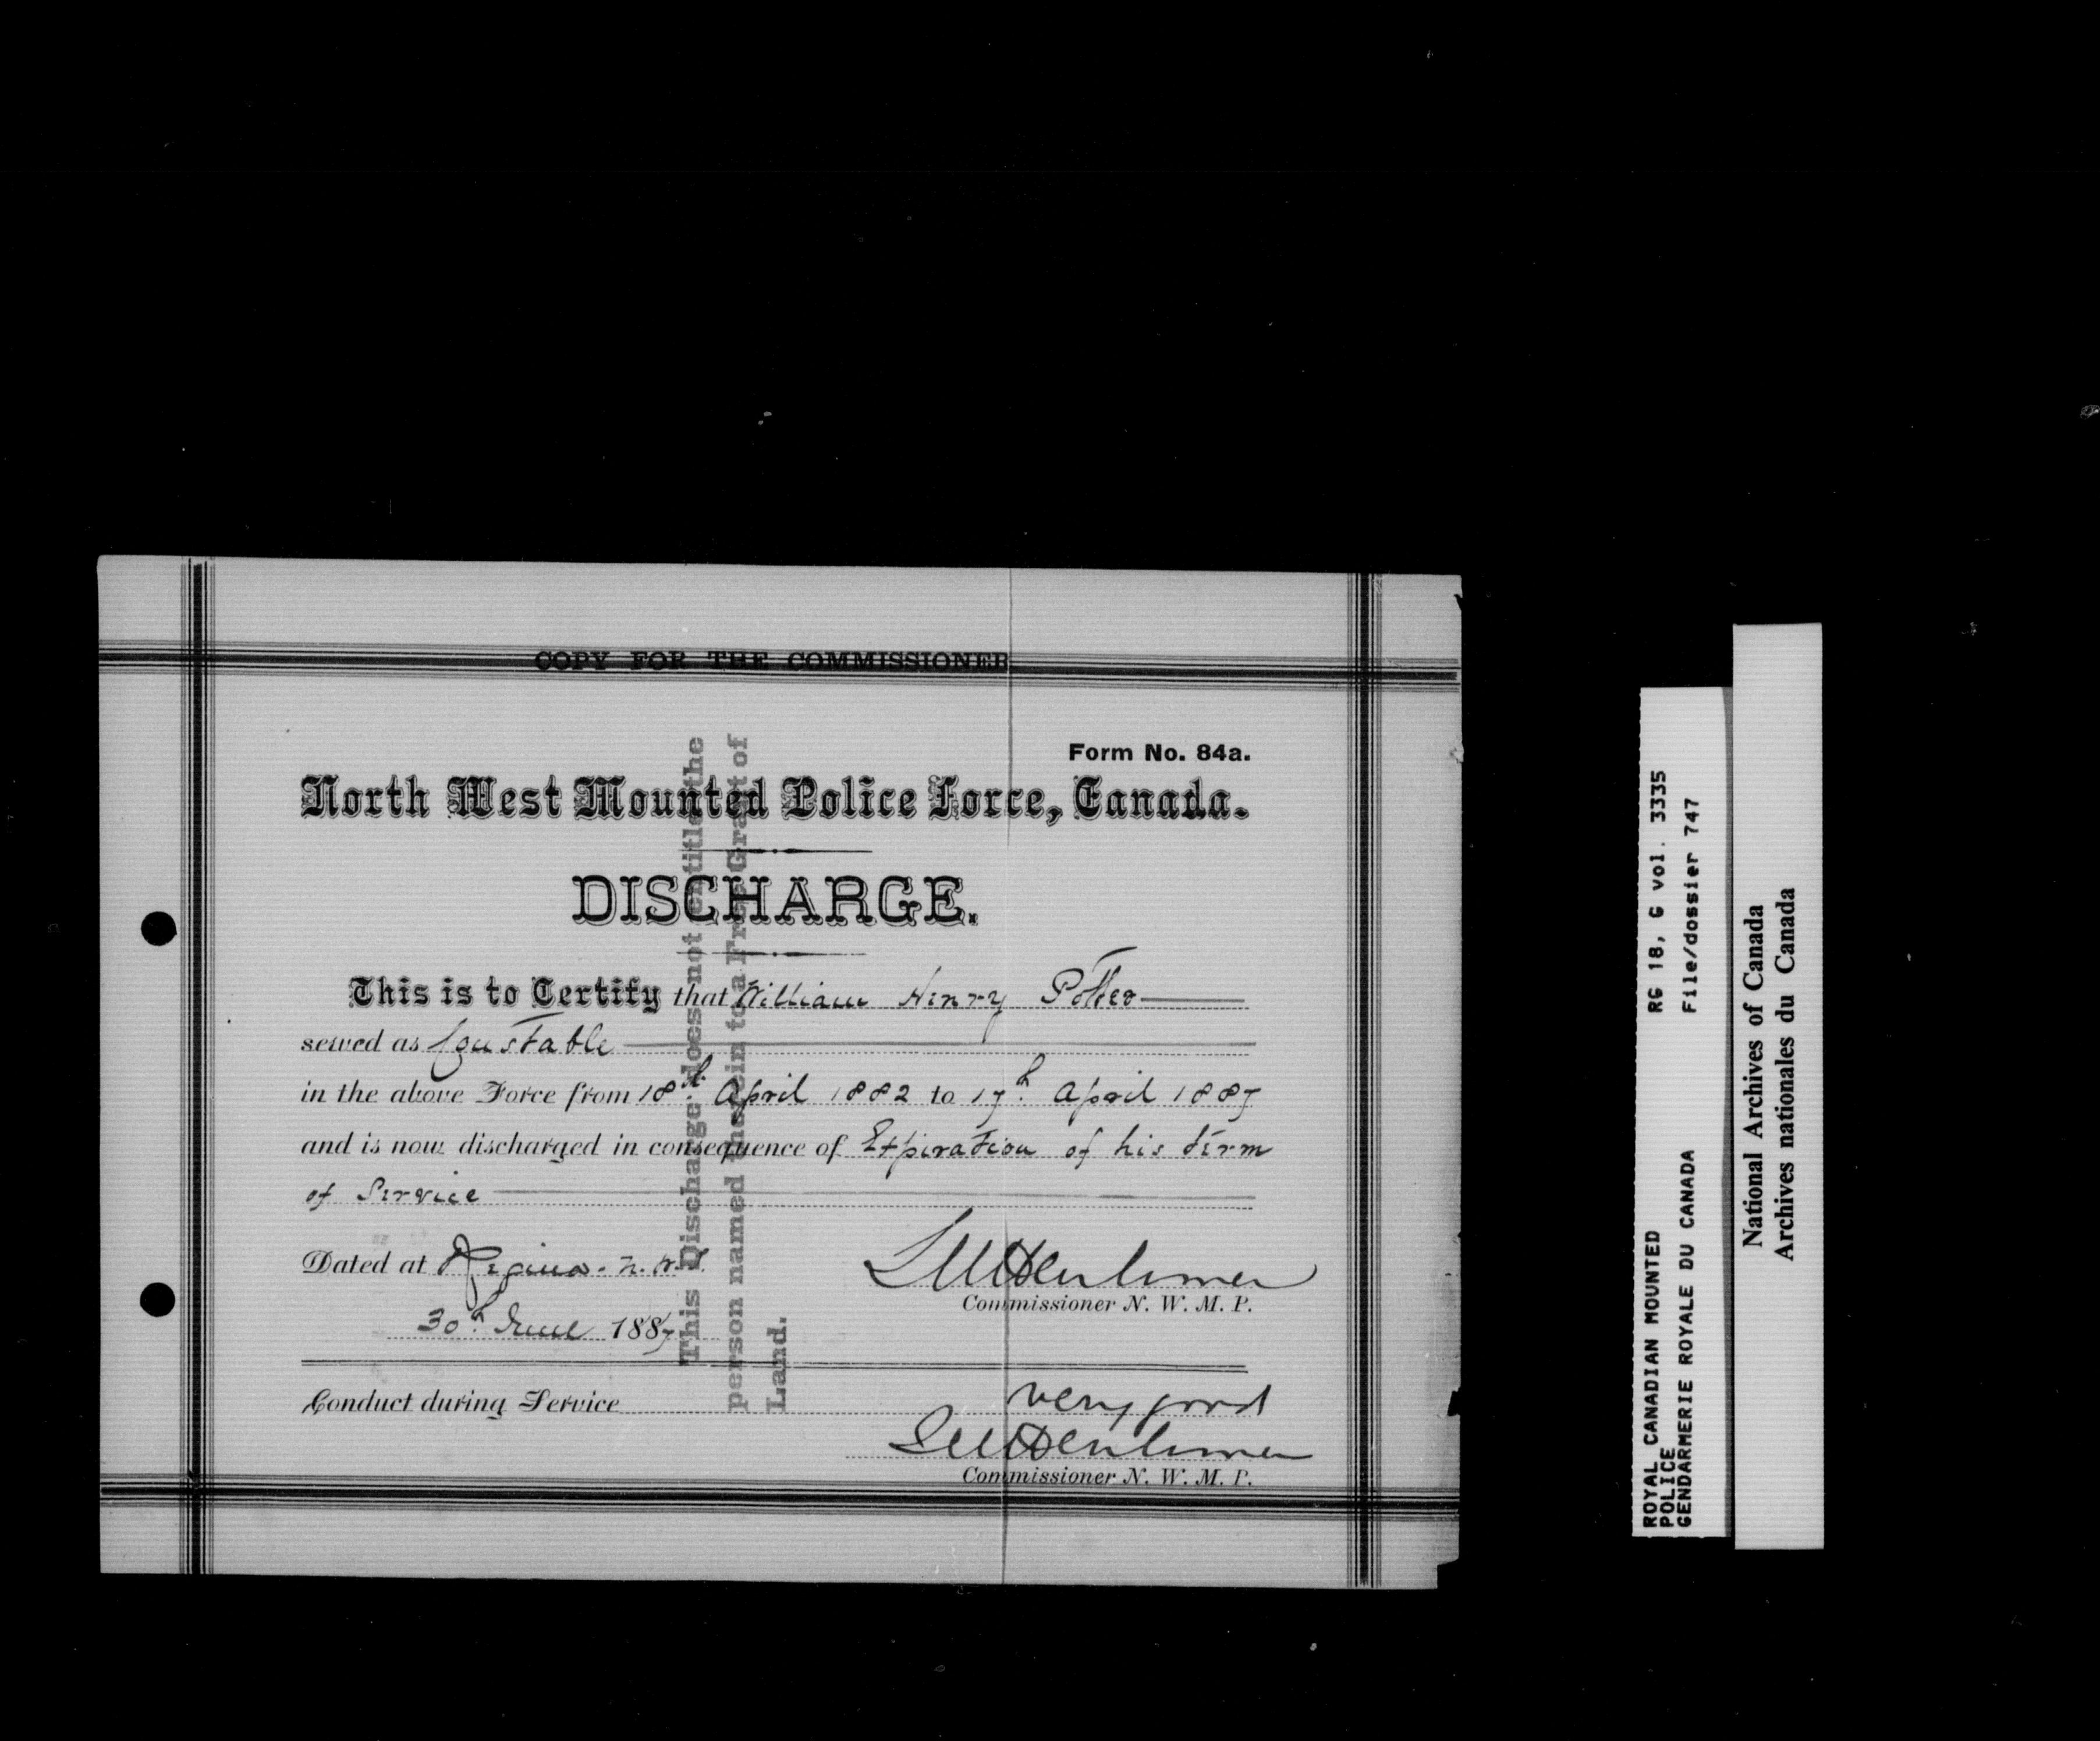 COPY FOR THE COMMISSIONER
Form No. 84a.
North West Mounted Police Force, Canada.
DISCHARGE.
This is to Certify that William Henry
served as Constable
in the above Force from 18th. April 1882 to 17th. April 1887
and is now discharged in consequence of Expiration of his term
of Service
Dated at Regina. N.W.T.
30th June 1887
Commissioner N. W. M. P.
Conduct during Service very good
Commissioner N. W. M. P.
This Discharge does not entitle the
person named therein to a Free Grant of
Land.
ROYAL CANADIAN MOUNTED
POLICE
GENDARMERIE ROYALE DU CANADA
RG 18, G vol. 3335
File/dossier 747
National Archives of Canada
Archives nationales du Canada